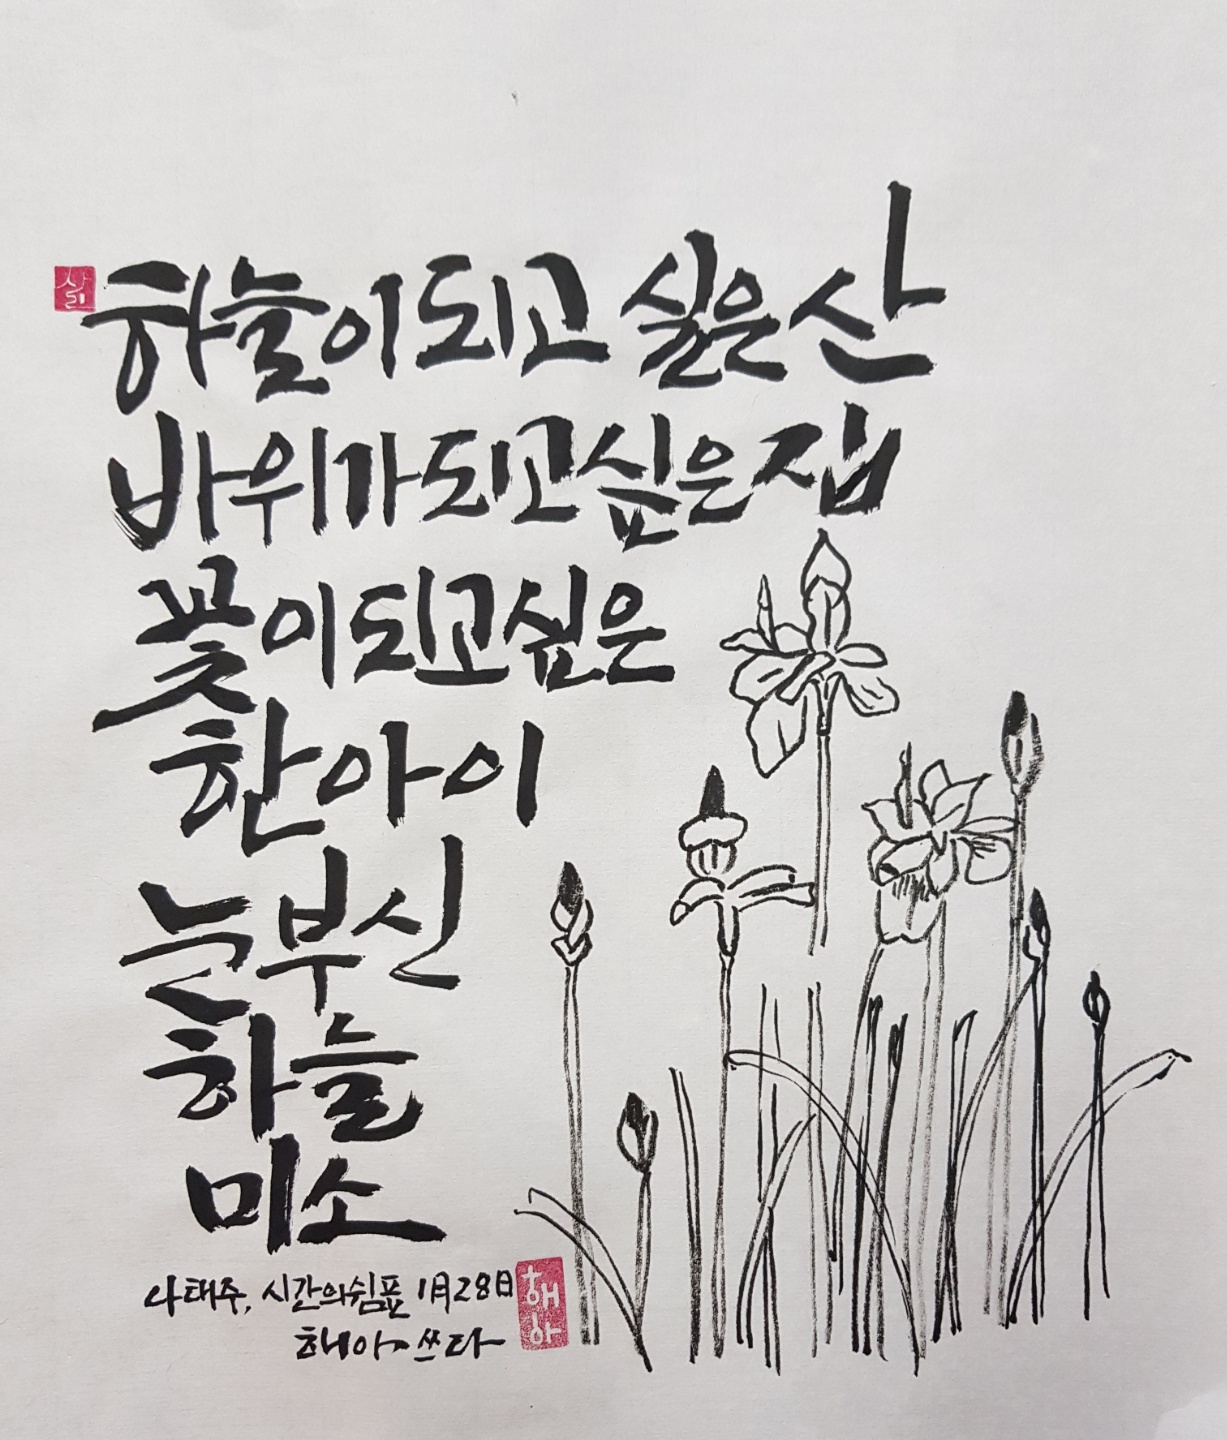 삶
하늘이 되고 싶은 산
바위가 되고 싶은 집
꽃이 되고 싶은
한 아이
눈부신
하늘
미소
나태주, 시간의쉼표 1月28日
해아 쓰다
해아